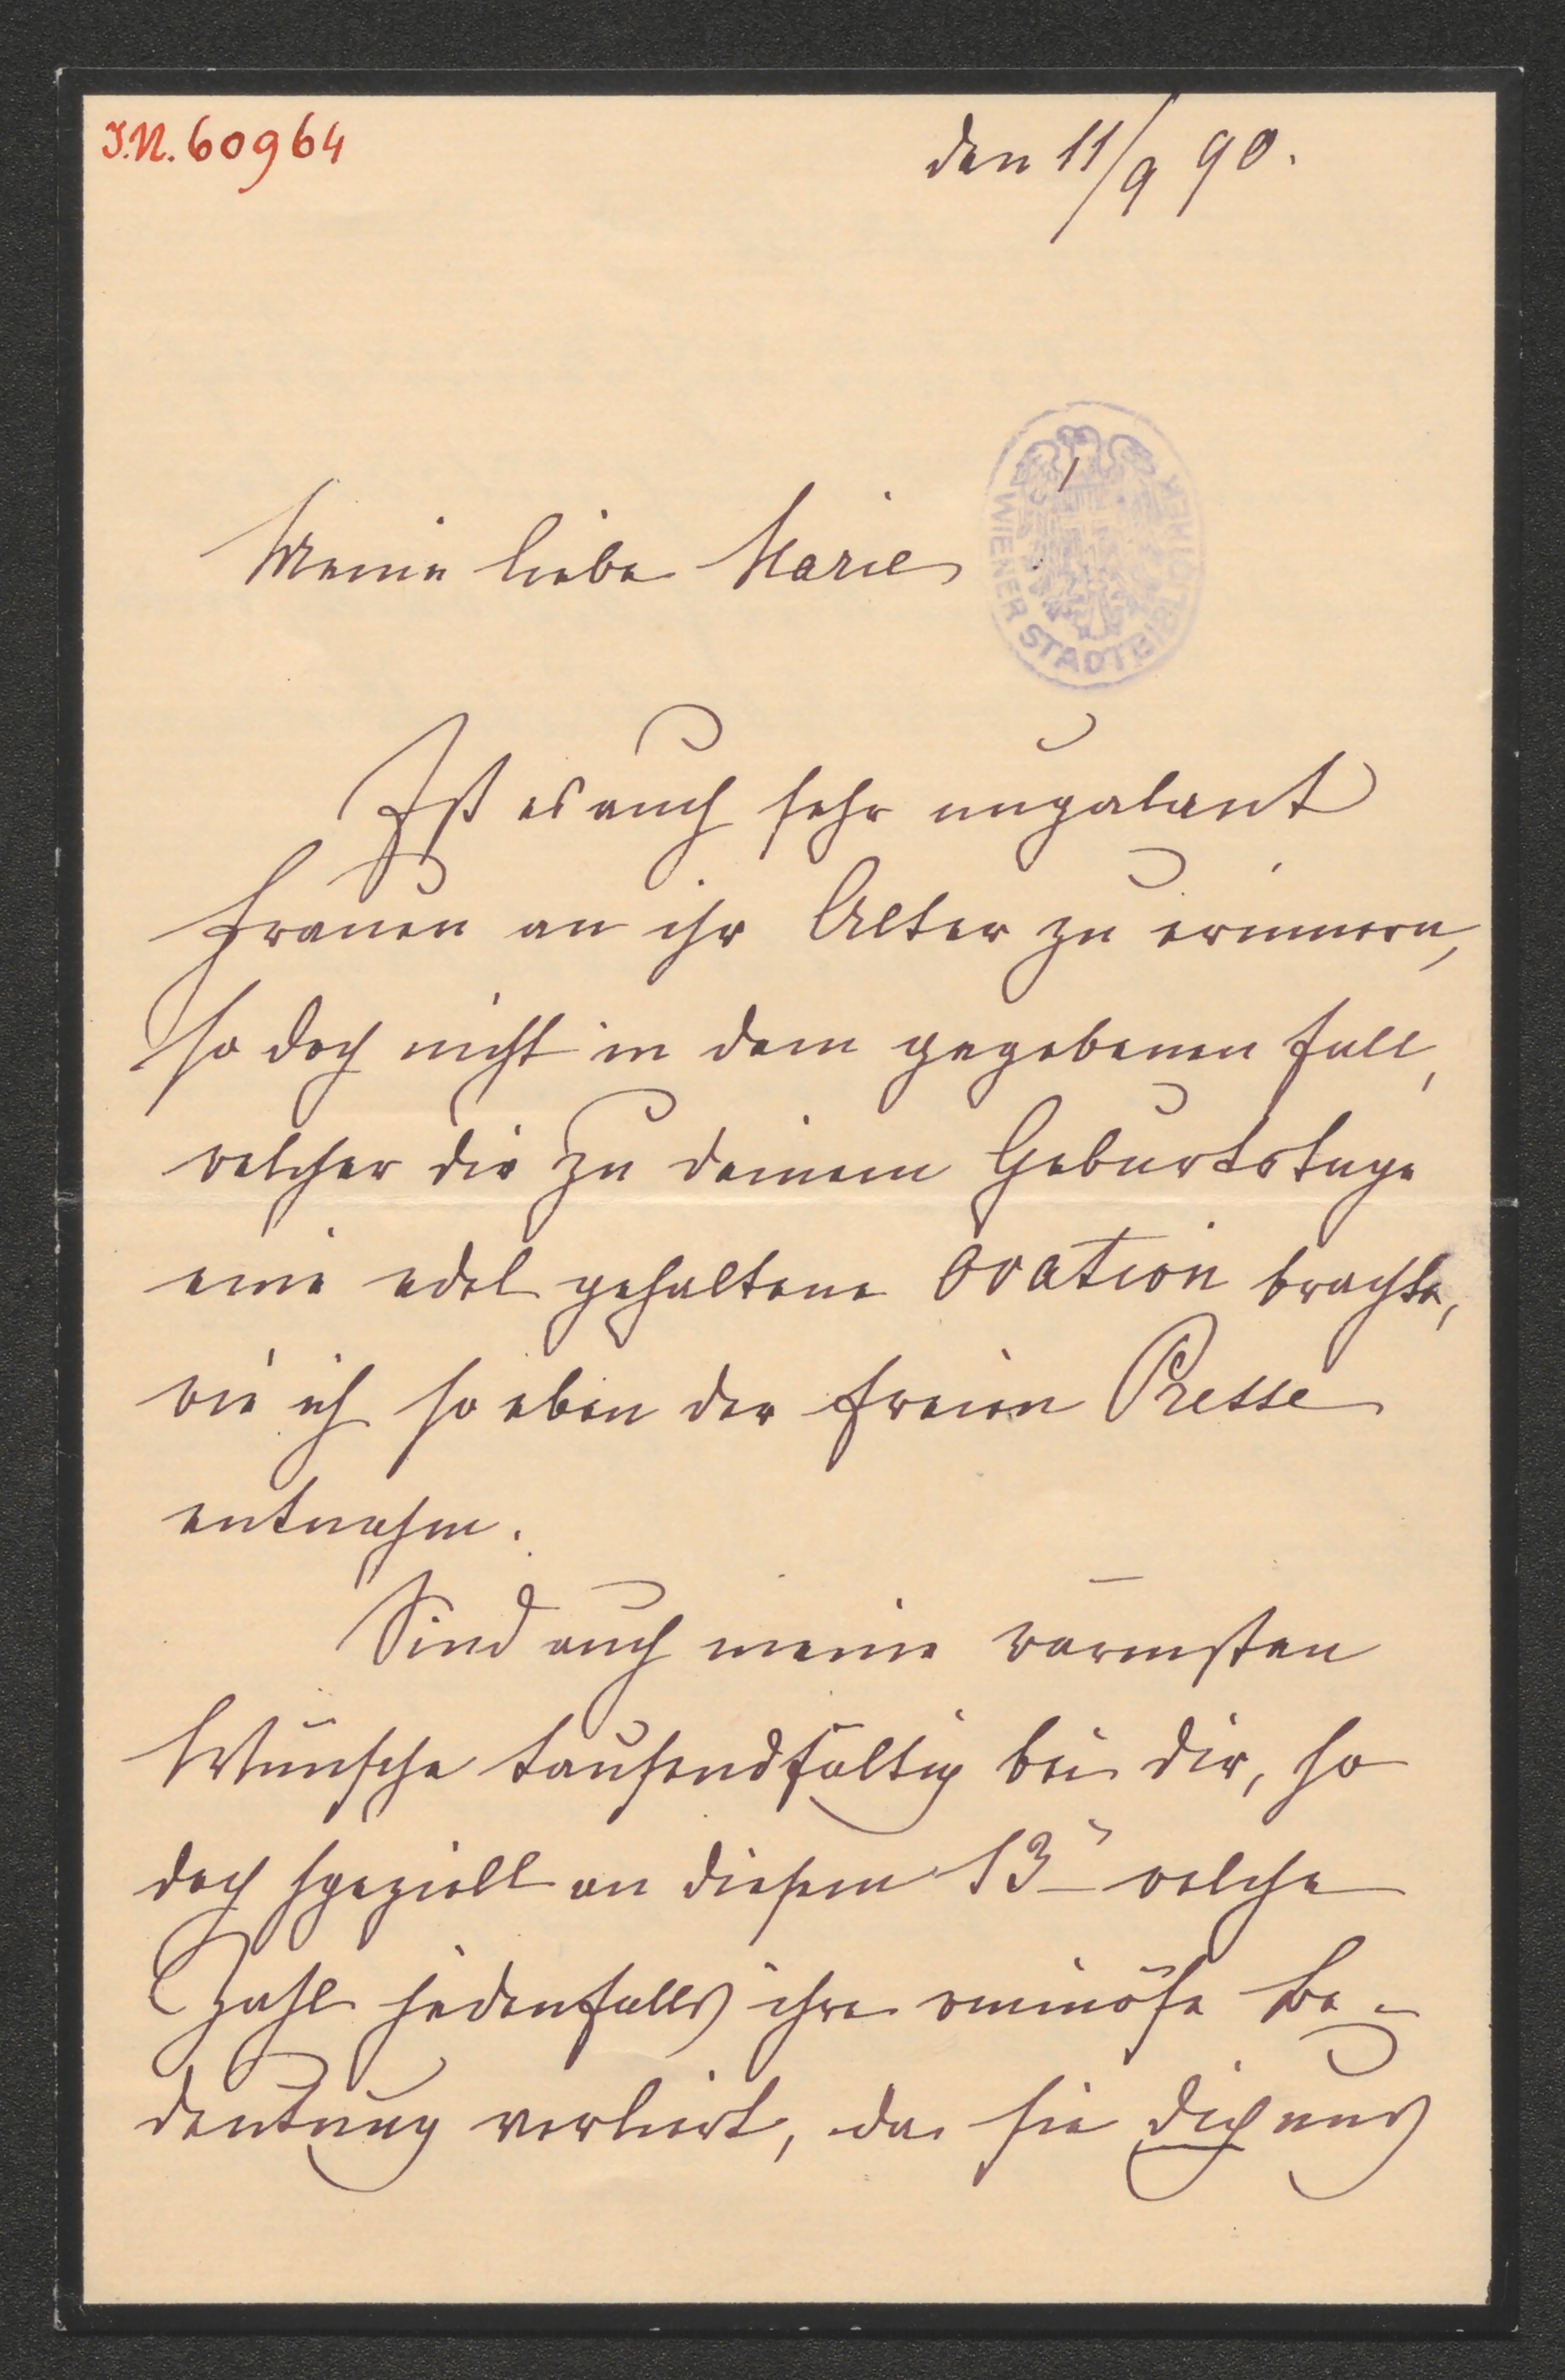 I.N. 60964
den 11/9 90.
Meine liebe Marie
WIENER STADTBIBLIOTHEK
Ist es auch sehr ungalant
Frauen an ihr Alter zu erinnern,
so doch nicht in dem gegebenen Fall,
welcher dir zu deinem Geburtstage
eine edel gehaltene Ovation brachte,
wie ich so eben der freien Presse
entnahm.
Sind auch meine wärmsten
Wünsche tausendfältig bei dir, so
doch speziell an diesem 13 welche
Zahl jedenfalls ihre ominöse Be-
deutung verliert, da sie dich uns